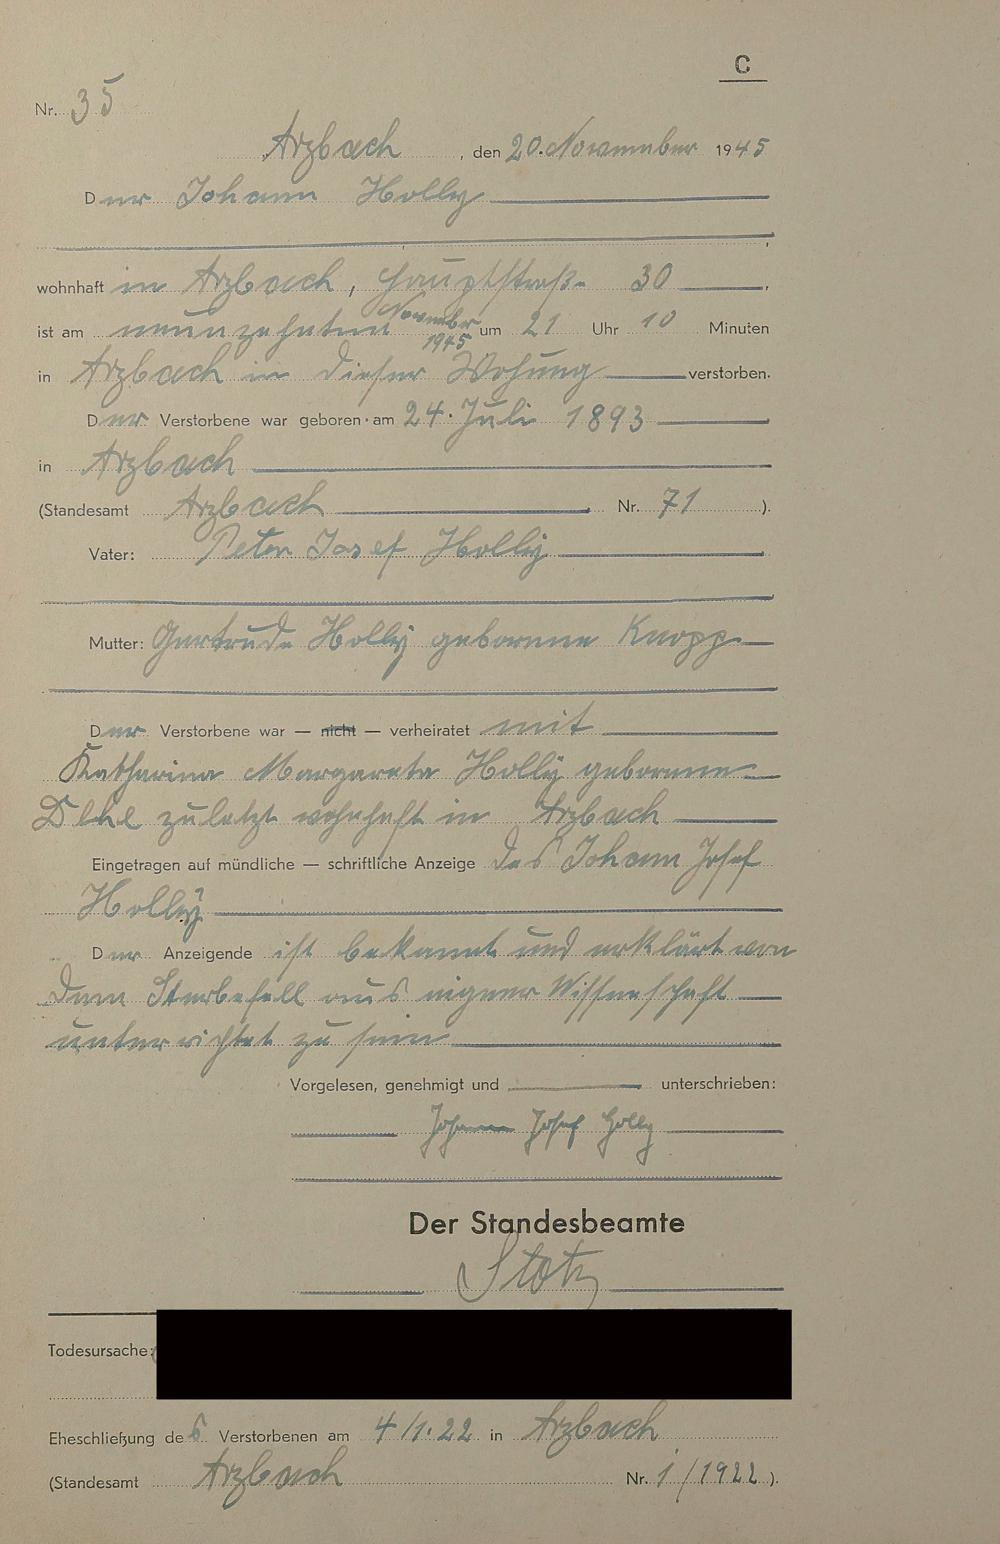 C
Nr. 35
Arzbach, den 20. November 1945
Der Johann Holly
wohnhaft in Arzbach, Hauptstraße 30,
ist am neunzehnten November 1945 um 21 Uhr 10 Minuten
in Arzbach in dieser Wohung verstorben.
Der Verstorbene war geboren am 24. Juli 1893
in Arzbach
(Standesamt Arzbach Nr. 71).
Vater: Peter Josef Holly
Mutter: Gertrude Holly geborene Knopp
Der Verstorbene war — nicht — verheiratet mit
Katharina Margareta Holly geborene
zuletzt wohnhaft in Arzbach
Eingetragen auf mündliche — schriftliche Anzeige des Johann Josef
Holly
Der Anzeigende ist bekannt und erklärt von
dem Sterbefall aus eigner Wissenschaft
unterrichtet zu sein
Vorgelesen, genehmigt und unterschrieben:
Johann Josef Holly
Der Standesbeamte
Stotz
Todesursache:
Eheschließung des Verstorbenen am 4/1.22 in Arzbach
(Standesamt Arzbach Nr. 1/1922).